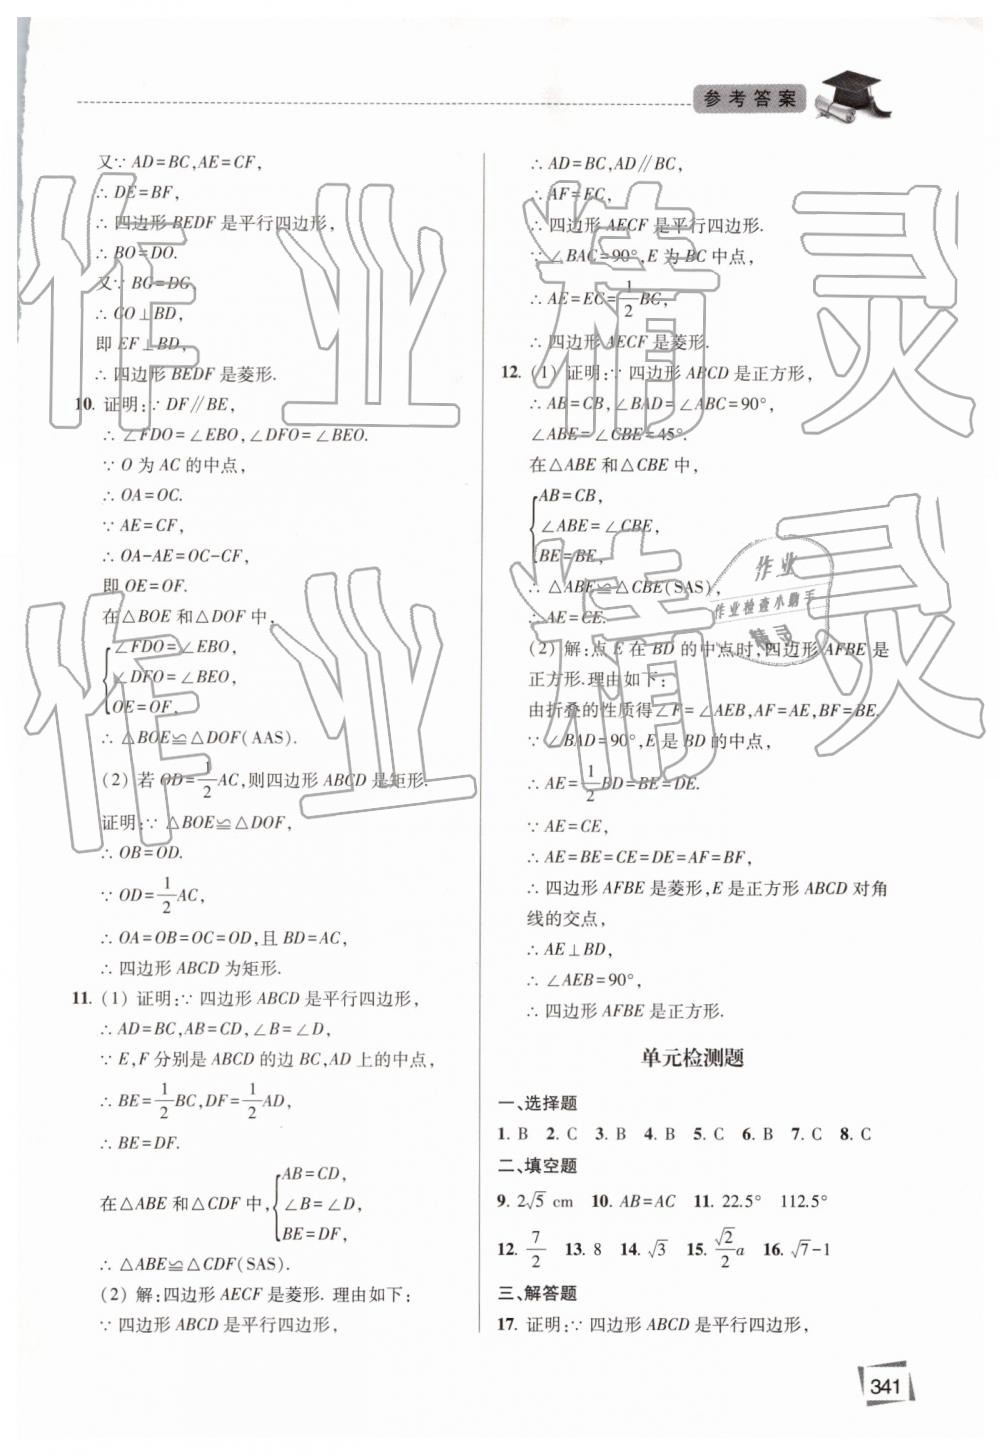 参考答案
又∵ AD=BC,AE=CF,
∴ DE=BF,
∴ 四边形 BEDF 是平行四边形,
∴ BO=DO.
又∵ BG=DG,
∴ CO⊥BD,
即 EF⊥BD,
∴ 四边形 BEDF 是菱形.
10. 证明:∵ DF∥BE,
∴ ∠FDO=∠EBO,∠DFO=∠BEO.
∵ O 为 AC 的中点,
∴ OA=OC.
∵ AE=CF,
∴ OA-AE=OC-CF,
即 OE=OF.
在△BOE 和△DOF 中,
{∠FDO=∠EBO,
∠DFO=∠BEO,
OE=OF,
∴ △BOE≌△DOF(AAS).
(2) 若 OD=1/2AC,则四边形 ABCD 是矩形.
证明:∵ △BOE≌△DOF,
∴ OB=OD.
∵ OD=1/2AC,
∴ OA=OB=OC=OD,且 BD=AC,
∴ 四边形 ABCD 为矩形.
11. (1) 证明:∵ 四边形 ABCD 是平行四边形,
∴ AD=BC,AB=CD,∠B=∠D,
∵ E,F 分别是 ABCD 的边 BC,AD 上的中点,
∴ BE=1/2BC,DF=1/2AD,
∴ BE=DF.
在△ABE 和△CDF 中,{AB=CD,
∠B=∠D,
BE=DF,
∴ △ABE≌△CDF(SAS).
(2) 解:四边形 AECF 是菱形. 理由如下:
∵ 四边形 ABCD 是平行四边形,
∴ AD=BC,AD∥BC,
∴ AF=EC,
∴ 四边形 AECF 是平行四边形.
∵ ∠BAC=90°,E 为 BC 中点,
∴ AE=EC=1/2BC,
∴ 四边形 AECF 是菱形.
12. (1) 证明:∵ 四边形 ABCD 是正方形,
∴ AB=CB,∠BAD=∠ABC=90°,
∠ABE=∠CBE=45°.
在△ABE 和△CBE 中,
{AB=CB,
∠ABE=∠CBE,
BE=BE,
∴ △ABE≌△CBE(SAS),
∴ AE=CE.
(2) 解:点 E 在 BD 的中点时,四边形 AFBE 是
正方形.理由如下:
由折叠的性质得∠F=∠AEB,AF=AE,BF=BE.
∵ ∠BAD=90°,E 是 BD 的中点,
∴ AE=1/2BD=BE=DE.
∵ AE=CE,
∴ AE=BE=CE=DE=AF=BF,
∴ 四边形 AFBE 是菱形,E 是正方形 ABCD 对角
线的交点,
∴ AE⊥BD,
∴ ∠AEB=90°,
∴ 四边形 AFBE 是正方形.
单元检测题
一、选择题
1. B 2. C 3. B 4. B 5. C 6. B 7. C 8. C
二、填空题
9. 2√5 cm 10. AB=AC 11. 22.5° 112.5°
12. 7/2 13. 8 14. √3 15. √2/2 a 16. √7-1
三、解答题
17. 证明:∵ 四边形 ABCD 是平行四边形,
341
作业精灵
作业精灵
作业
作业检查小助手
精灵